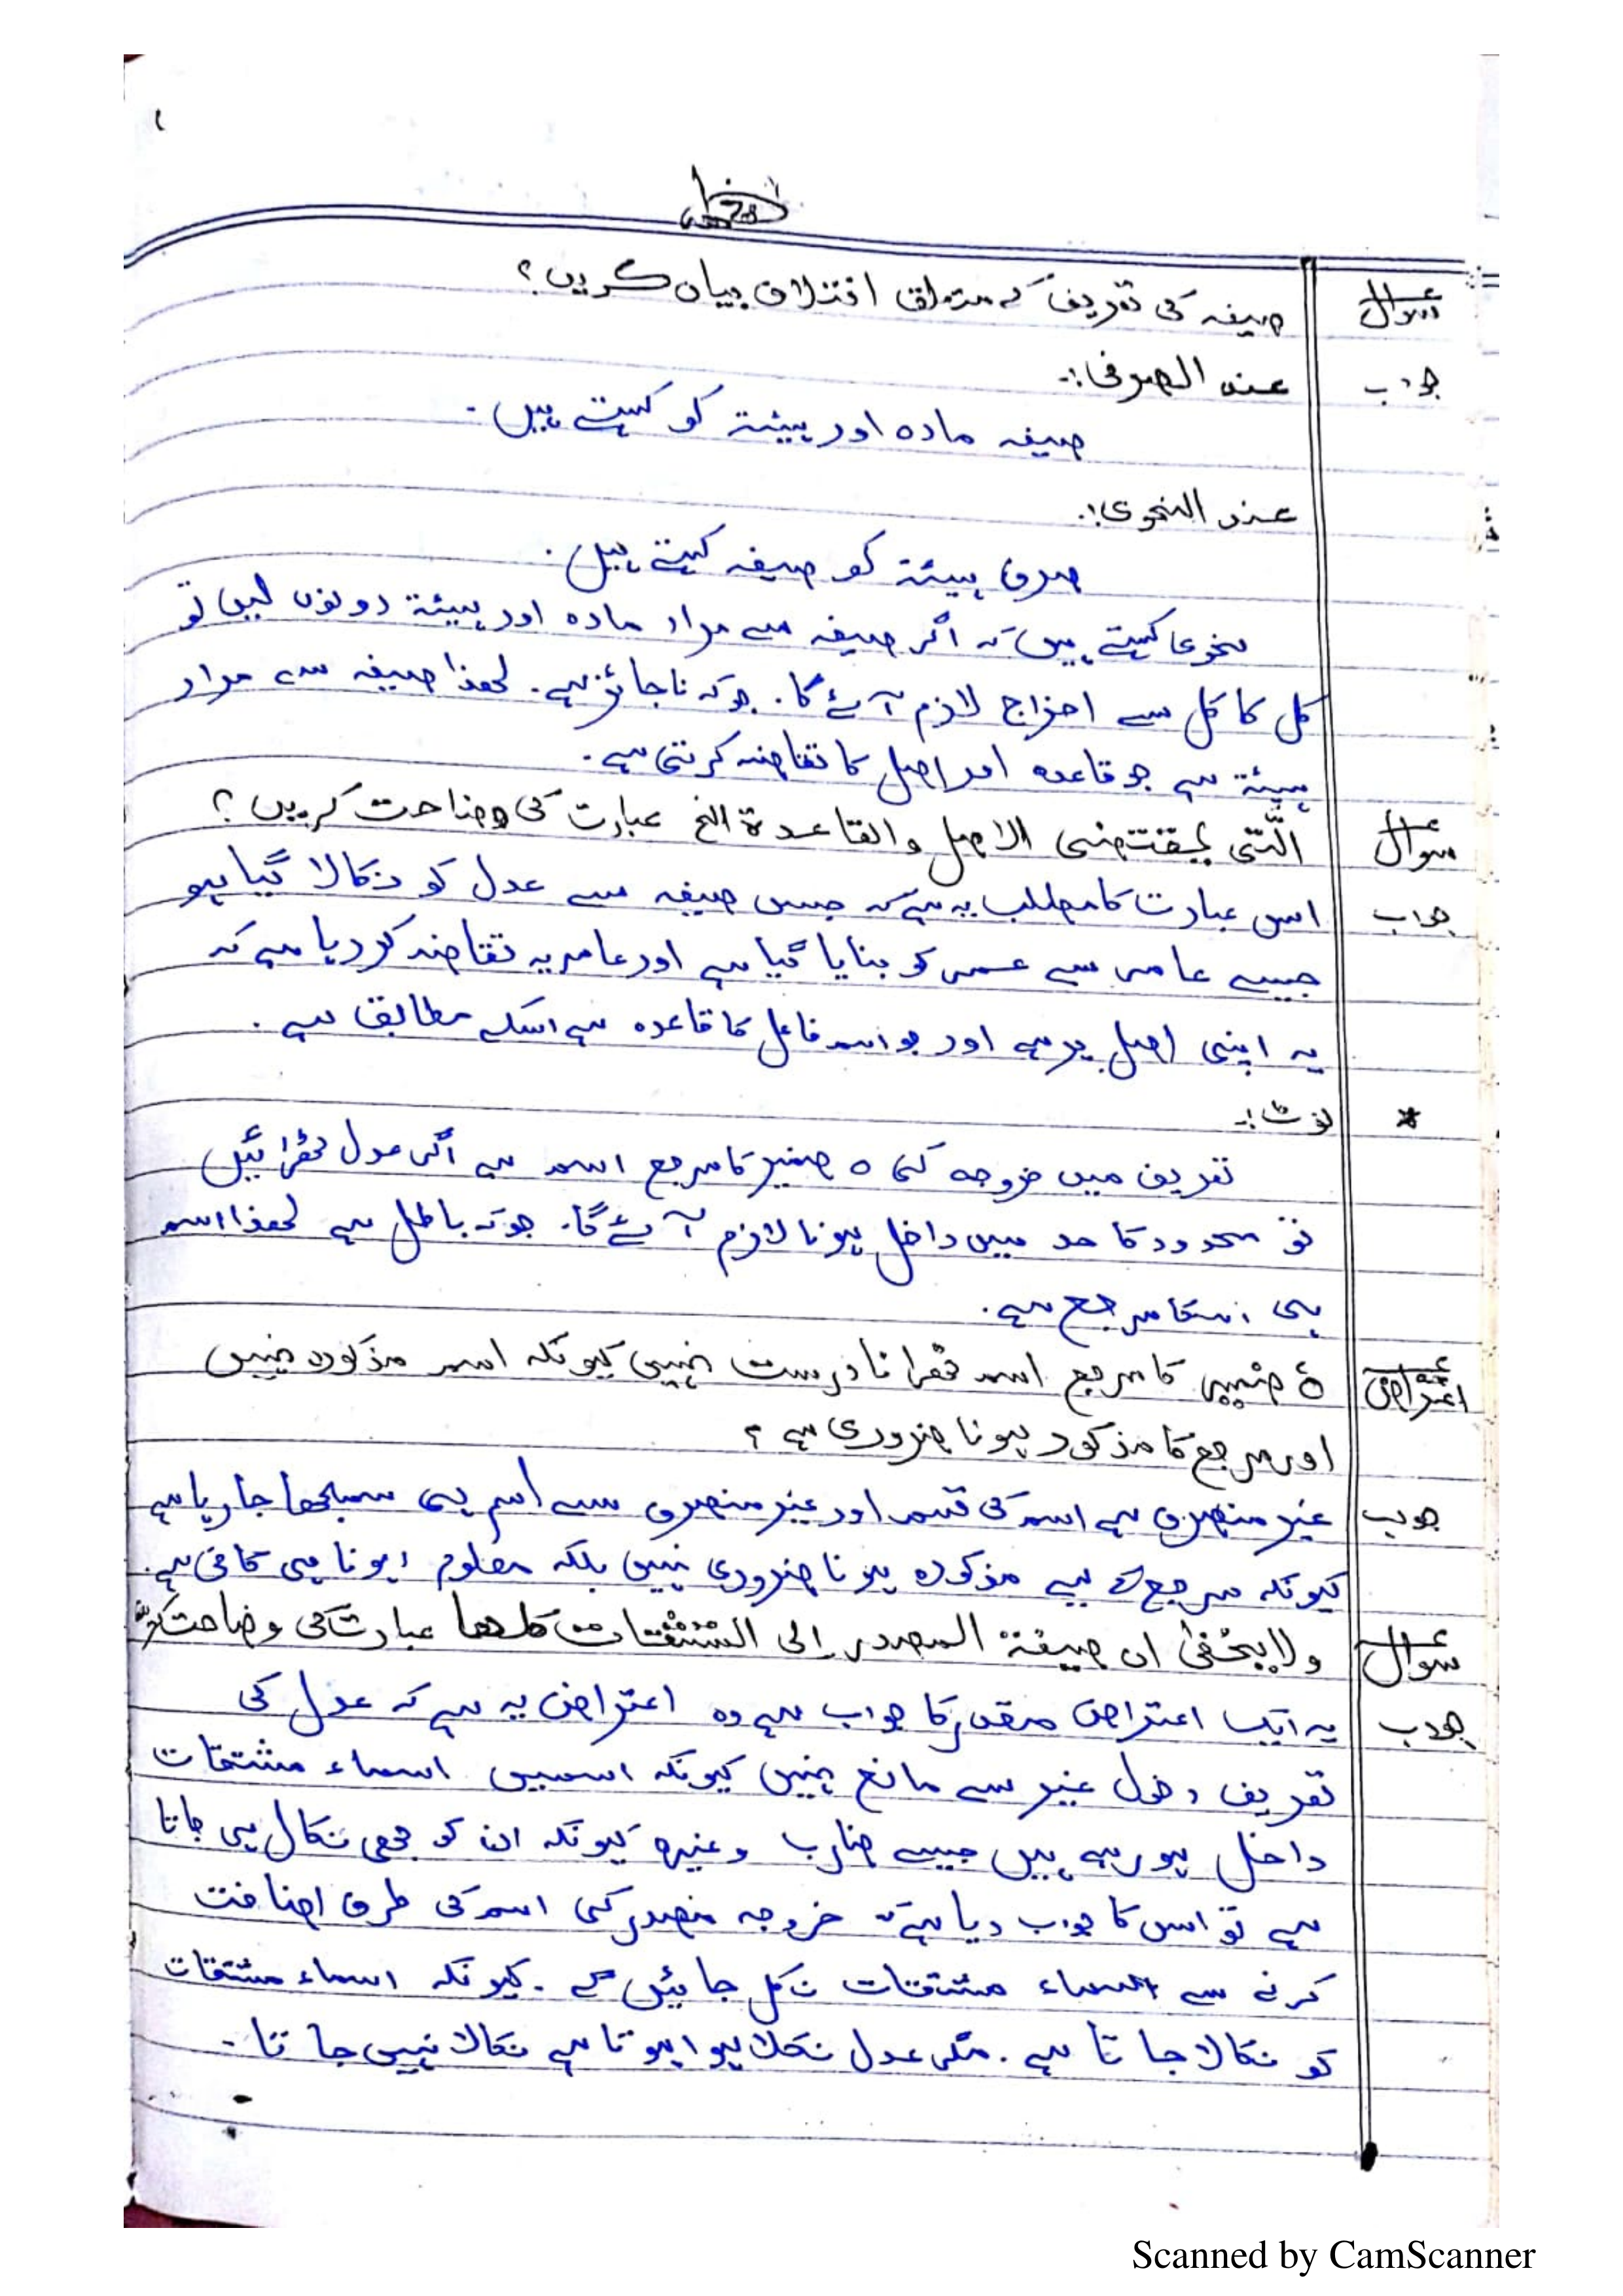 سوال صیغہ کی تعریف کے متعلق اختلاف بیان کریں؟
جواب عند الصرفی:۔
صیغہ مادہ اور ہیئتہ کو کہتے ہیں۔
عند النحوی:۔
صرف ہیئتہ کو صیغہ کہتے ہیں۔
نحوی کہتے ہیں کہ اگر صیغہ سے مراد مادہ اور ہیئتہ دونوں لیں تو
کل کا کل سے اخراج لازم آئے گا۔ جو کہ ناجائز ہے۔ لھذا صیغہ سے مراد
ہیئتہ ہے جو قاعدہ اور اصل کا تقاضہ کرتی ہے۔
سوال الَّتی یقتضی الاصل والقاعدۃ الخ عبارت کی وضاحت کریں؟
جواب اس عبارت کا مطلب یہ ہے کہ جس صیغہ سے عدل کو نکالا گیا ہو
جیسے عامر سے عمر کو بنایا گیا ہے اور عامر یہ تقاضہ کر رہا ہے کہ
یہ اپنی اصل پر ہے اور جو اسم فاعل کا قاعدہ ہے اسکے مطابق ہے۔
* نوٹ:۔
تعریف میں خروجہ کی ہ ضمیر کا مرجع اسم ہے اگر عدل ٹھرائیں
تو محدود کا حد میں داخل ہونا لازم آئے گا۔ جو کہ باطل ہے لھذا اسم
ہی اسکا مرجع ہے۔
اعتراض ہٗ ضمیر کا مرجع اسم ٹھرانا درست نہیں کیونکہ اسم مذکورہ نہیں
اور مرجع کا مذکور ہونا ضروری ہے؟
جواب غیر منصرف ہے اسم کی قسم اور غیر منصرف سے اسم ہی سمجھا جا رہا ہے
کیونکہ مرجع کے لیے مذکورہ ہونا ضروری نہیں بلکہ معلوم ہونا ہی کافی ہے۔
سوال ولایخفیٰ ان صیغۃ المصدر الی المشتقات کلھا عبارت کی وضاحت
جواب یہ ایک اعتراض مقدر کا جواب ہے وہ اعتراض یہ ہے کہ عدل کی
تعریف دخول غیر سے مانع نہیں کیونکہ اسمیں اسماء مشتقات
داخل ہو رہے ہیں جیسے ضارب وغیرہ کیونکہ ان کو بھی نکال ہی جاتا
ہے تو اس کا جواب دیا ہے کہ خروجہ مصدر کی اسم کی طرف اضافت
کرنے سے اسماء مشتقات نکل جائیں گے۔ کیونکہ اسماء مشتقات
کو نکالا جاتا ہے۔ مگر عدل نکلا ہوا ہوتا ہے نکالا نہیں جاتا۔
Scanned by CamScanner